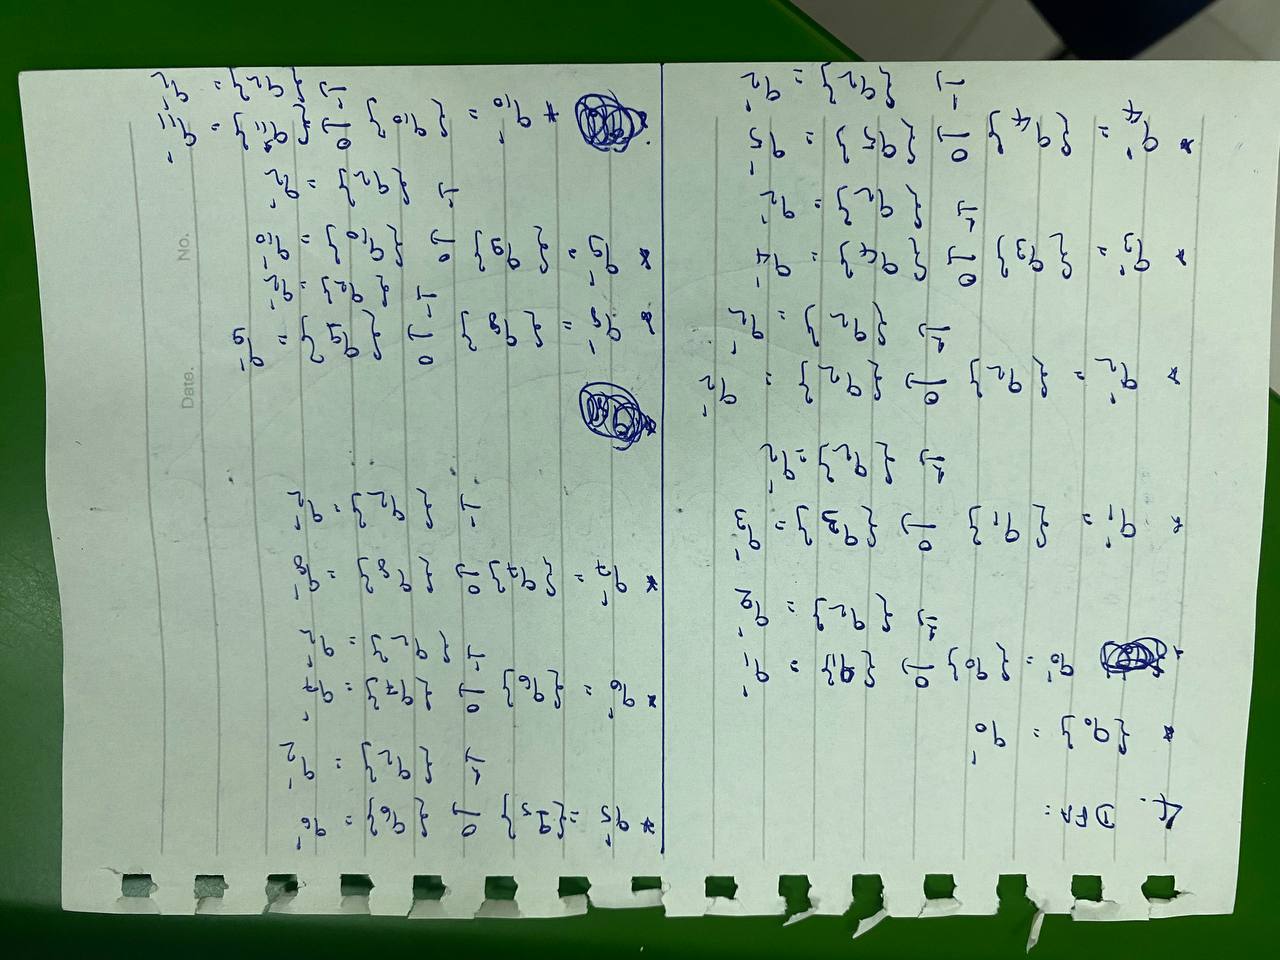 4. DFA:
* {q₀} = q₀'
* q₀' = {q₀} 0→ {q₁} = q₁'
1→ {q₂} = q₂'
* q₁' = {q₁} 0→ {q₃} = q₃'
1→ {q₂} = q₂'
* q₂' = {q₂} 0→ {q₂} = q₂'
1→ {q₂} = q₂'
* q₃' = {q₃} 0→ {q₄} = q₄'
1→ {q₂} = q₂'
* q₄' = {q₄} 0→ {q₅} = q₅'
1→ {q₂} = q₂'
* q₅' = {q₅} 0→ {q₆} = q₆'
1→ {q₂} = q₂'
* q₆' = {q₆} 0→ {q₇} = q₇'
1→ {q₂} = q₂'
* q₇' = {q₇} 0→ {q₈} = q₈'
1→ {q₂} = q₂'
* q₈' = {q₈} 0→ {q₉} = q₉'
1→ {q₂} = q₂'
* q₉' = {q₉} 0→ {q₁₀} = q₁₀'
1→ {q₂} = q₂'
* q₁₀' = {q₁₀} 0→ {q₁₁} = q₁₁'
1→ {q₂} = q₂'
Date.
No.